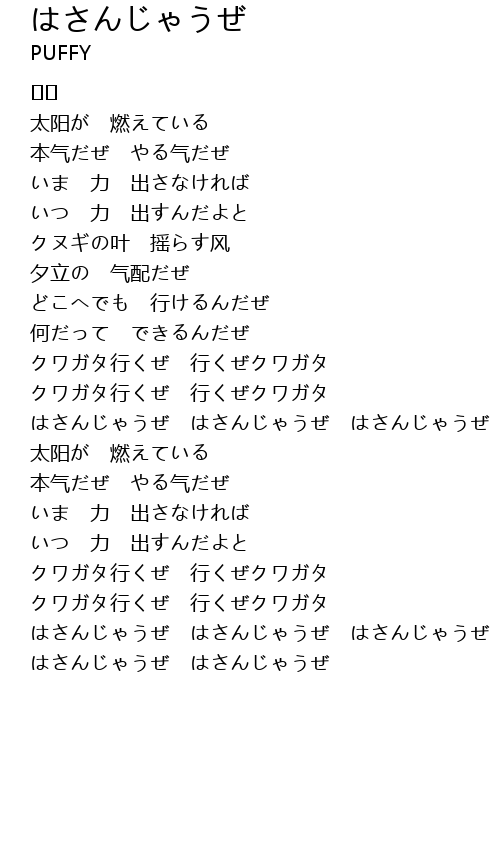 はさんじゃうぜ
PUFFY
太阳が　燃えている
本气だぜ　やる气だぜ
いま　力　出さなければ
いつ　力　出すんだよと
クヌギの叶　摇らす风
夕立の　气配だぜ
どこへでも　行けるんだぜ
何だって　できるんだぜ
クワガタ行くぜ　行くぜクワガタ
クワガタ行くぜ　行くぜクワガタ
はさんじゃうぜ　はさんじゃうぜ　はさんじゃうぜ
太阳が　燃えている
本气だぜ　やる气だぜ
いま　力　出さなければ
いつ　力　出すんだよと
クワガタ行くぜ　行くぜクワガタ
クワガタ行くぜ　行くぜクワガタ
はさんじゃうぜ　はさんじゃうぜ　はさんじゃうぜ
はさんじゃうぜ　はさんじゃうぜ